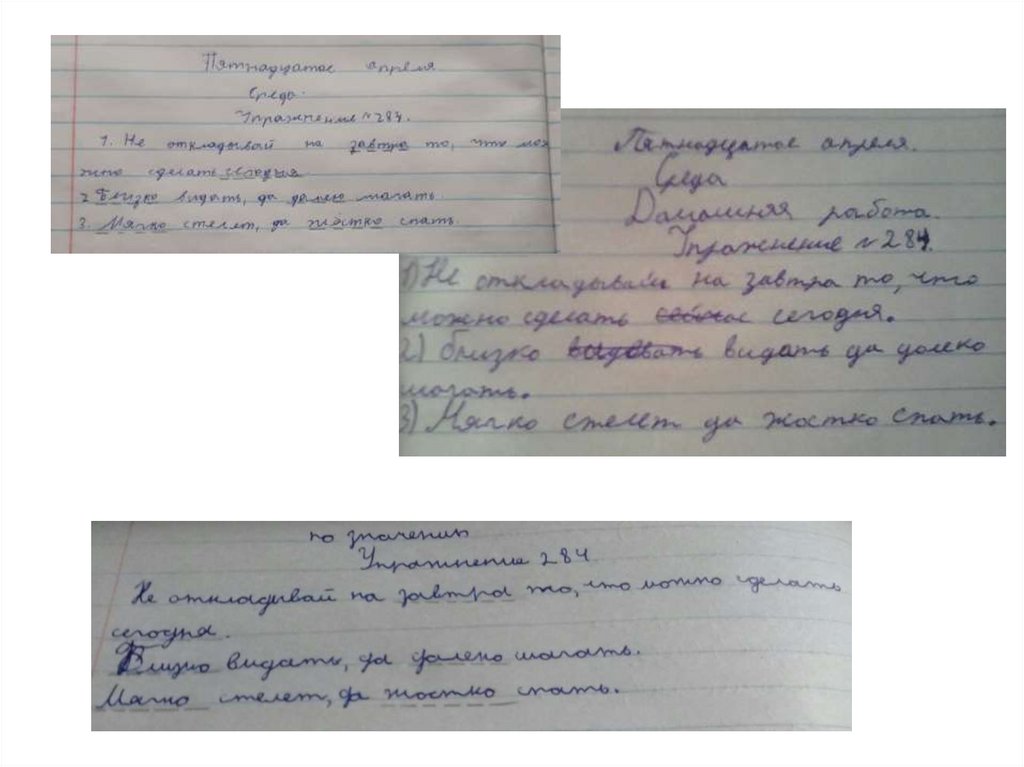 Пятнадцатое апреля
Среда.
Упражнение №284.
1. Не откладывай на завтра то, что мож
жно сделать сегодня
2 Близко видать, да далеко шагать.
3. Мягко стелет, да жостко спать.
Пятнадцатое апреля.
Среда
Домашняя работа.
Упражнение №284.
1) Не откладывай на завтра то, что
можно сделать сегодня.
2) Близко видать да долеко
шагать.
3) Мягко стелет да жостко спать.
по значению
Упражнение 284
Не откладывай на завтра то, что можно сделать
сегодня.
Близко видать, да далеко шагать.
Мягко стелет, да жостко спать.